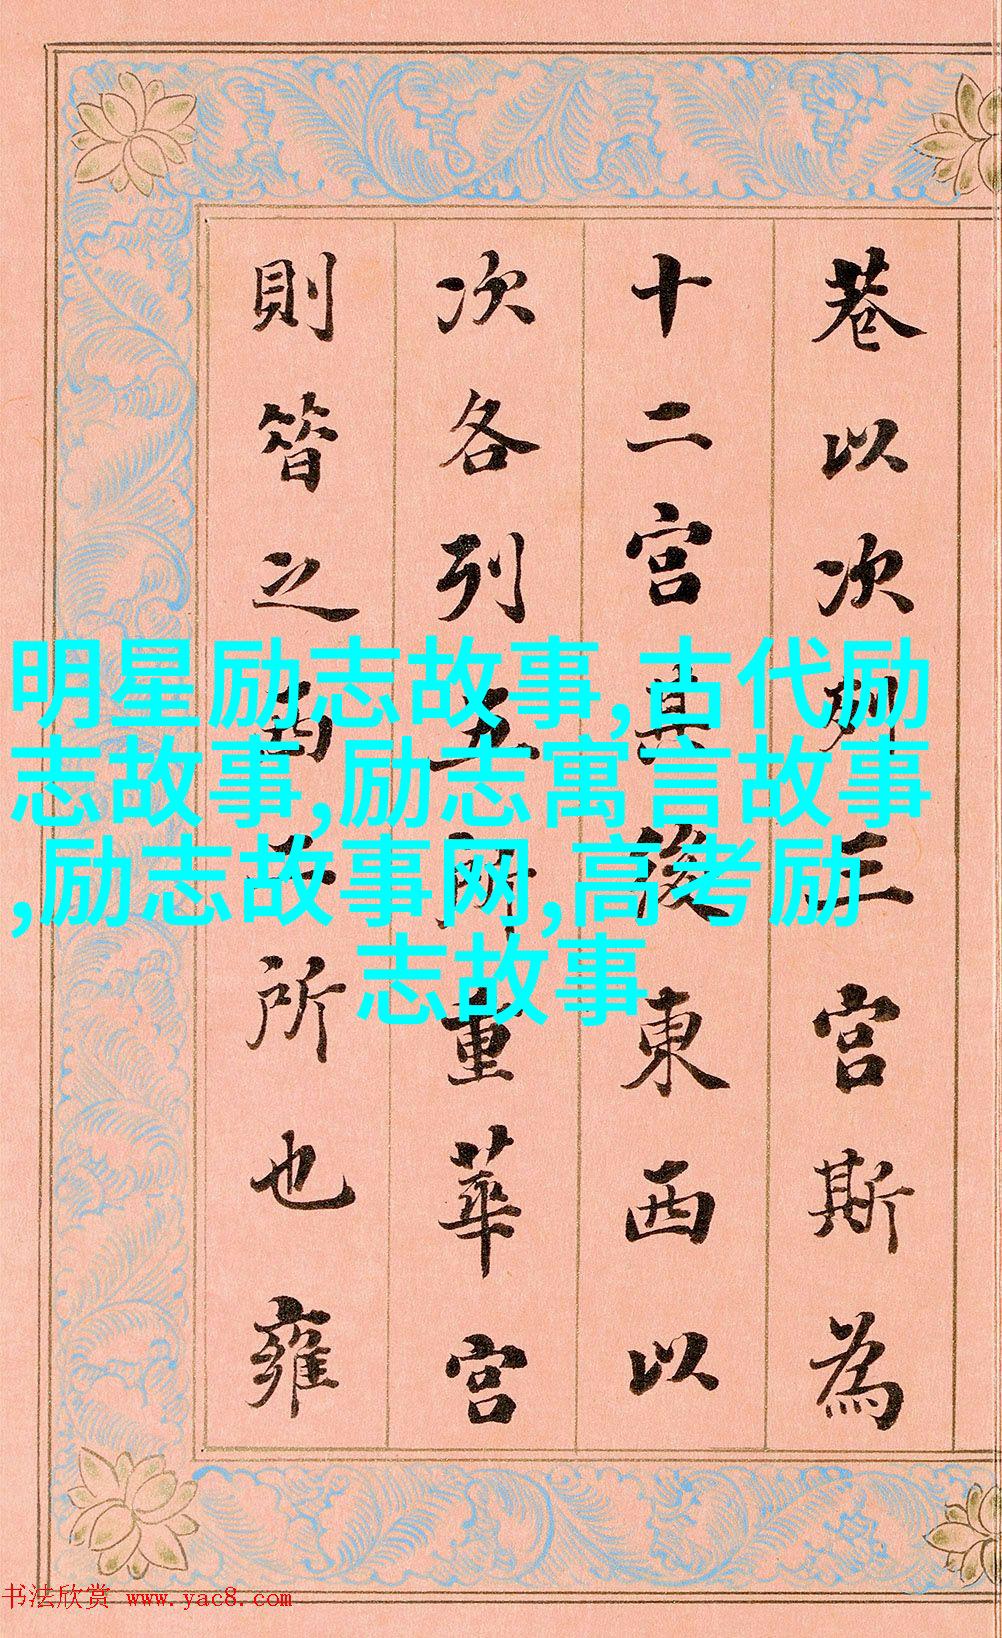 巷以次列三宮斯為
十二宮其後東西以
次各列五所重華宮
則昔之西二所也雍
明星励志故事,古代励
志故事,励志寓言故事
,励志故事网,高考励
志故事
书法欣赏 www.yac8.com